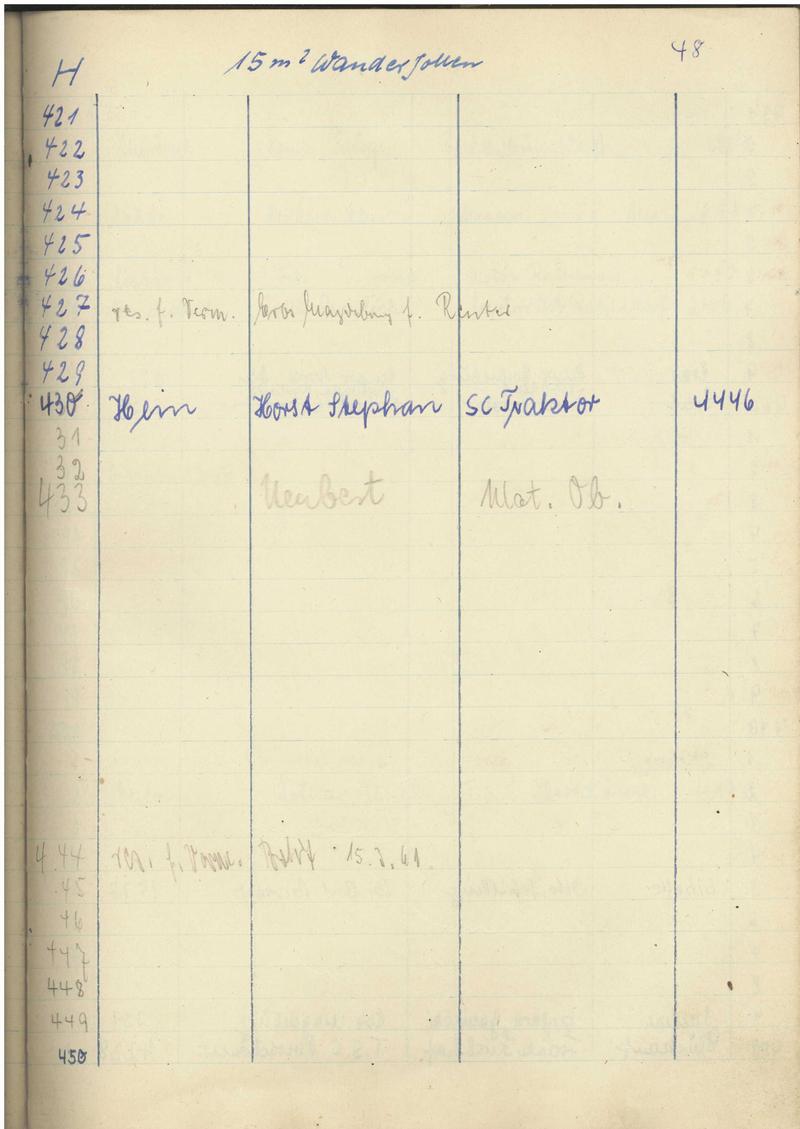 48
H 15 m² Wanderjollen
421
422
423
424
425
426
427 res. f. Verm. Magdeburg f. Renter
428
429
430 Hein Horst Stephan SC Traktor 4446
31
32
433 Neubert Mat. Ob.
444 res. f. Verm. 15.3.61
45
46
447
448
449
450